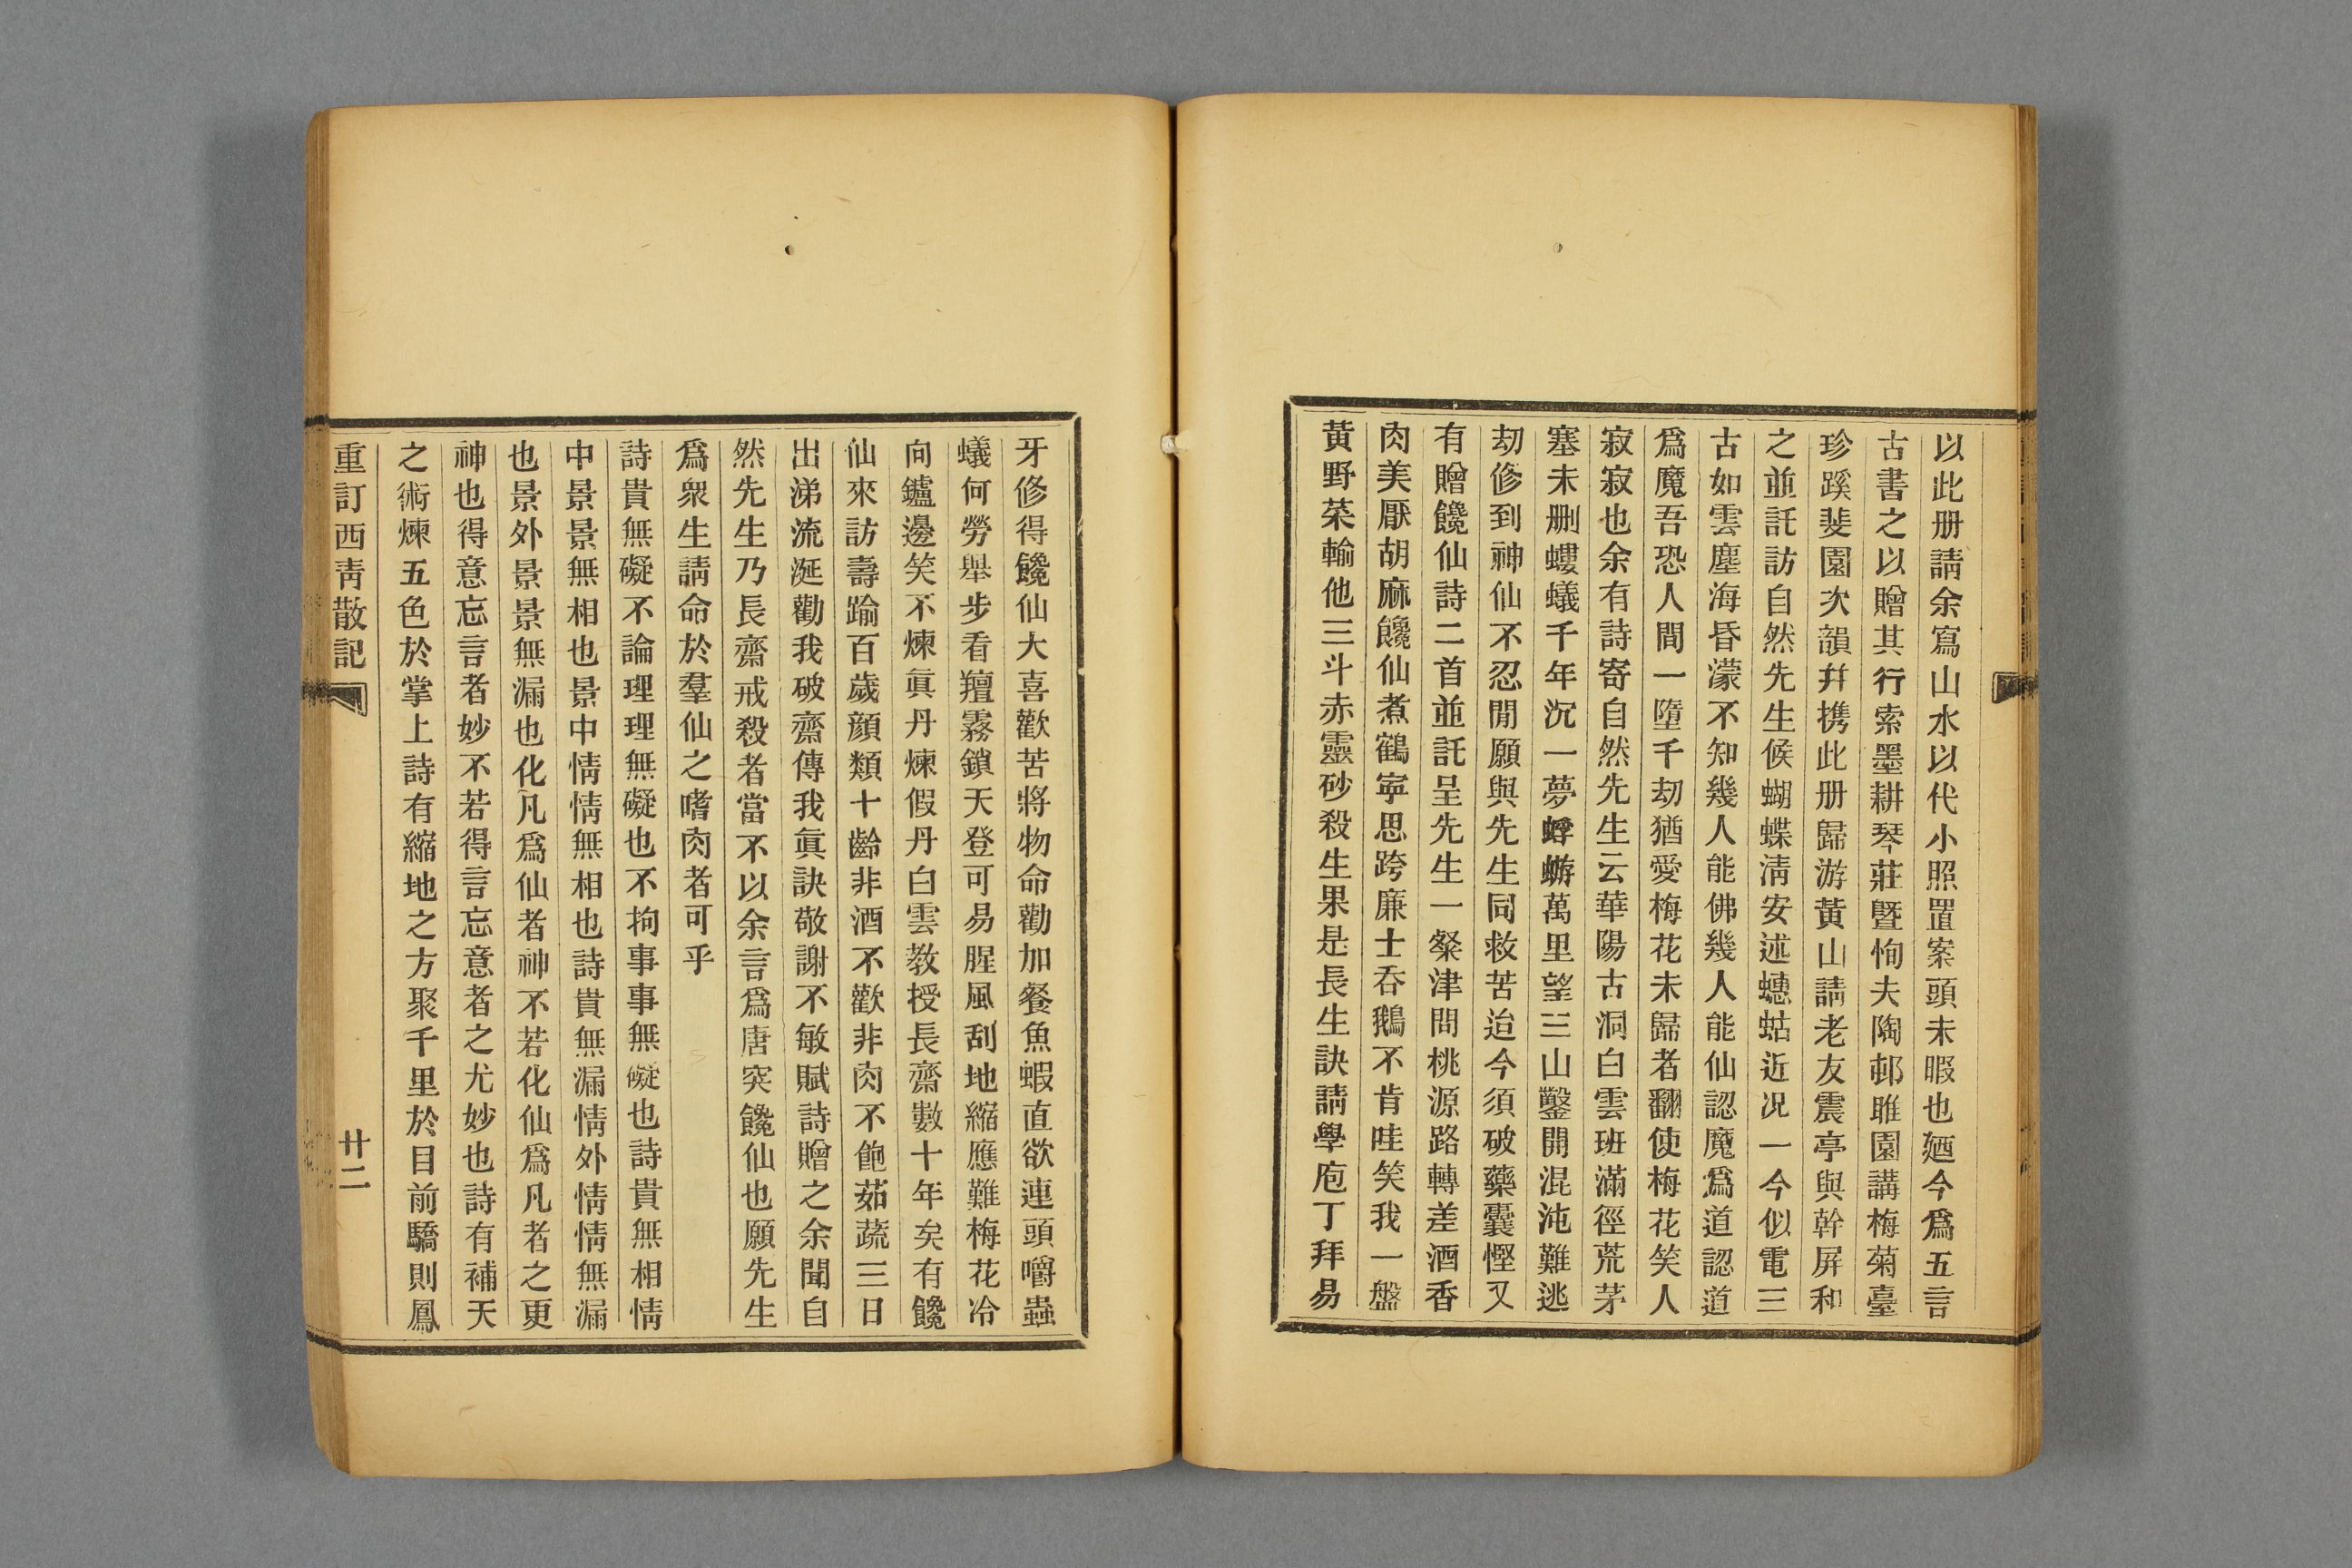 以此册請余寫山水以代小照置案頭未暇也廼今爲五言
古書之以贈其行索墨耕琴莊曁恂夫陶邨雎園講梅菊臺
珍蹊斐園次韻幷携此册歸游黃山請老友震亭與幹屏和
之並託訪自然先生候蝴蝶淸安述蟪蛄近况一今似電三
古如雲塵海昏濛不知幾人能佛幾人能仙認魔爲道認道
爲魔吾恐人間一墮千劫猶愛梅花未歸者翻使梅花笑人
寂寂也余有詩寄自然先生云華陽古洞白雲班滿徑荒茅
塞未删螻蟻千年沉一夢蜉蝣萬里望三山鑿開混沌難逃
劫修到神仙不忍閒願與先生同救苦迨今須破藥囊慳又
有贈饞仙詩二首並託呈先生一粲津問桃源路轉差酒香
肉美厭胡麻饞仙煮鶴寧思跨廉士呑鵝不肯哇笑我一盤
黃野菜輸他三斗赤靈砂殺生果是長生訣請學庖丁拜易
牙修得饞仙大喜歡苦將物命勸加餐魚蝦直欲連頭嚼蟲
蟻何勞舉步看羶霧鎖天登可易腥風刮地縮應難梅花冷
向鑪邊笑不煉眞丹煉假丹白雲教授長齋數十年矣有饞
仙來訪壽踰百歲顏類十齡非酒不歡非肉不飽茹蔬三日
出涕流涎勸我破齋傳我眞訣敬謝不敏賦詩贈之余聞自
然先生乃長齋戒殺者當不以余言爲唐突饞仙也願先生
爲衆生請命於羣仙之嗜肉者可乎
詩貴無礙不論理理無礙也不拘事事無礙也詩貴無相情
中景景無相也景中情情無相也詩貴無漏情外情情無漏
也景外景景無漏也化凡爲仙者神不若化仙爲凡者之更
神也得意忘言者妙不若得言忘意者之尤妙也詩有補天
之術煉五色於掌上詩有縮地之方聚千里於目前驕則鳳
重訂西靑散記
廿二